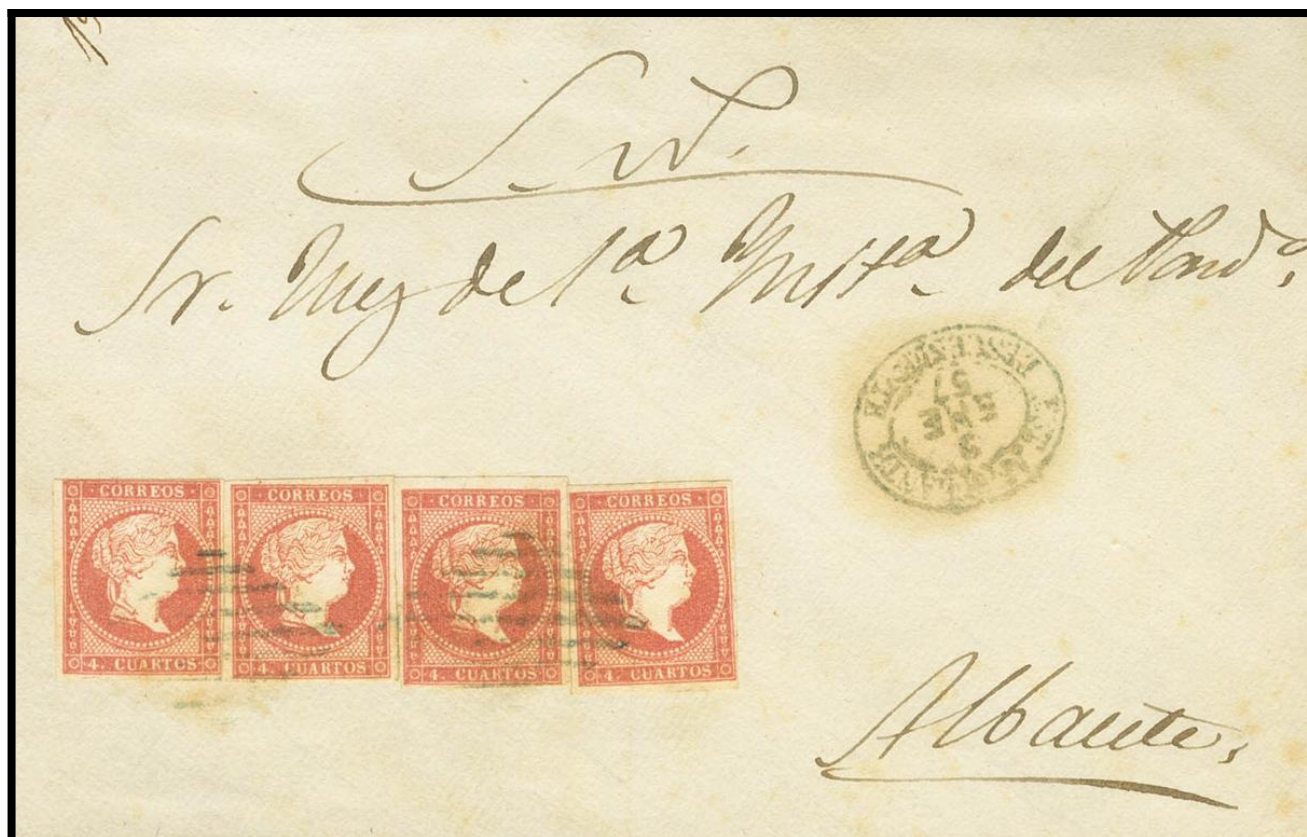 S. N.
Sr. Juez de 1ª Instª del Partdº
3
ENE
57
CORREOS CORREOS CORREOS CORREOS
4. CUARTOS 4. CUARTOS 4. CUARTOS 4. CUARTOS
Albacete.